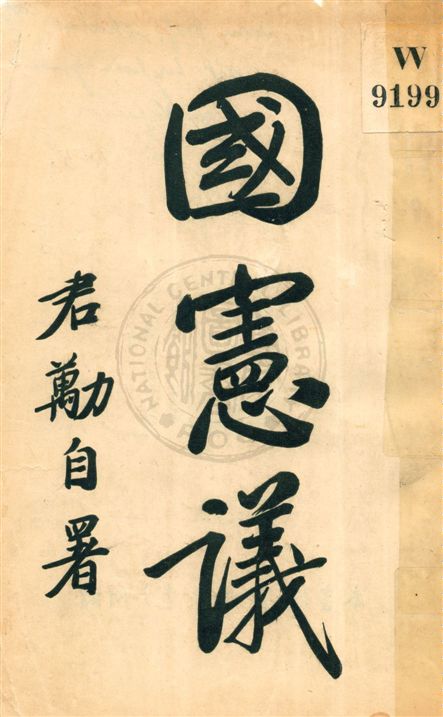 W
9199
國憲議
君勱自署
NATIONAL CENTRAL LIBRARY